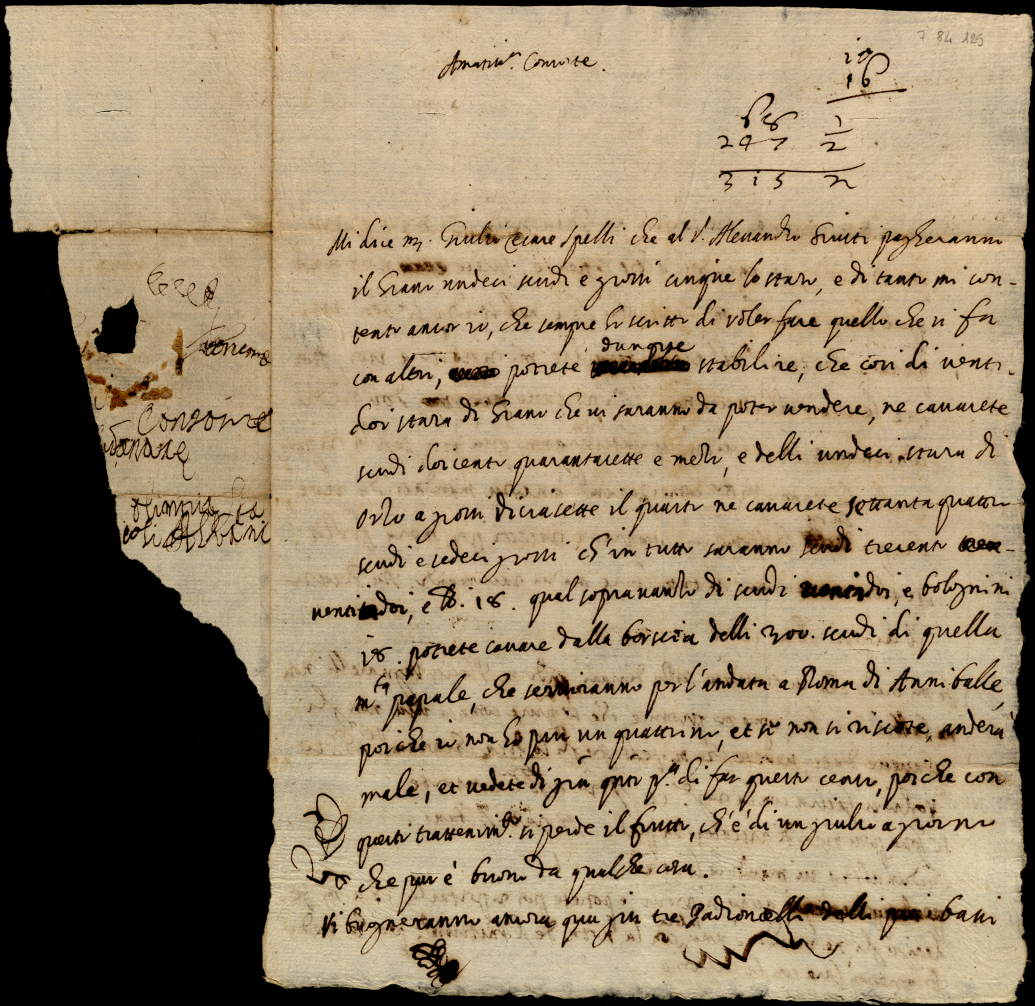 7 84 125
Amatiss.ª Consorte.
10
16
68
247 1/2
315 2
Mi dice m. Giulio Cesare Spelli che al S. Alessandro Giusti pagheranno
il Grano undeci scudi e grossi cinque lo staro, e di tanto mi con-
tento ancor io, che sempre ho scritto di voler fare quello che si fa
con altri, potrete dunque stabilire, che così di venti
doi stara di Grano che vi saranno da poter vendere, ne cavarete
scudi doicento quarantasette e mezo, e delli undeci stara di
Orzo a grossi diciasette il quarto ne cavarete settanta quattro
scudi e sedeci grossi ch'in tutto saranno scudi trecento
ventidoi, e b. 18. qual sopravanzo di scudi ventidoi, e bolognini
18. potrete cavare dalla borscia delli 300. scudi di quella
m.ta papale, che serviranno per l'andata a Roma di Anniballe,
poiche io non ho pur un quattrino, et se non si riscote, anderà
male, et vedete di giu p.ª di far questo censo, poiche con
questi trattenim.ti si perde il frutto, ch'è di un giulio a giorno
che pur è buono da qualche cosa.
Vi bugneranno ancora qua giu tre Padioncelli delli bassi
Consorte
Olimpia
Albani